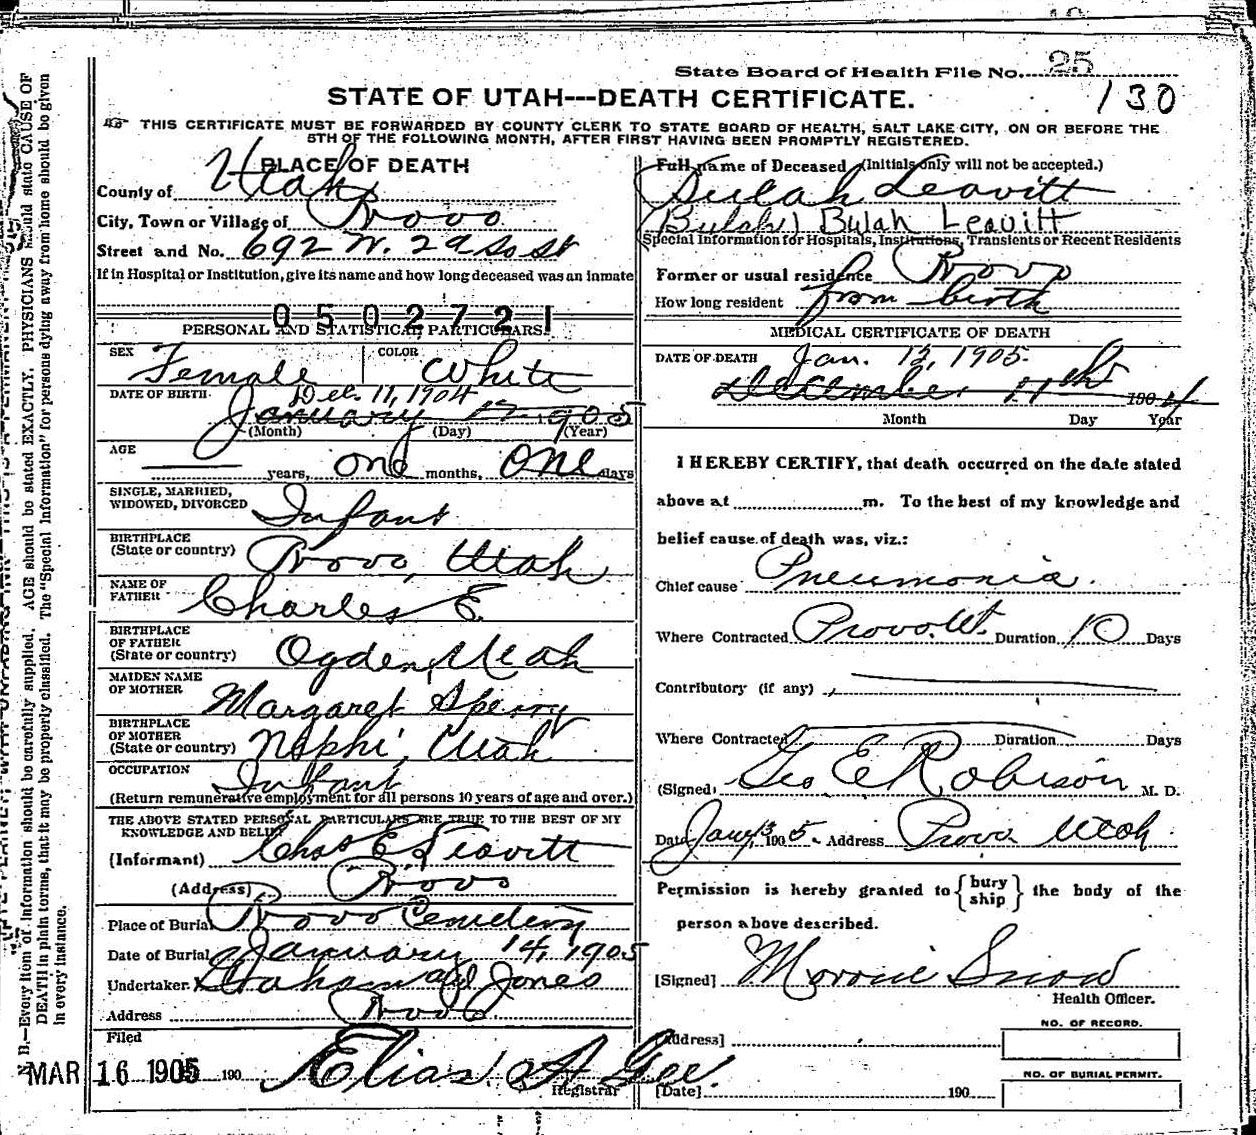 State Board of Health File No. 25
130
STATE OF UTAH---DEATH CERTIFICATE.
THIS CERTIFICATE MUST BE FORWARDED BY COUNTY CLERK TO STATE BOARD OF HEALTH, SALT LAKE CITY, ON OR BEFORE THE
5TH OF THE FOLLOWING MONTH, AFTER FIRST HAVING BEEN PROMPTLY REGISTERED.
PLACE OF DEATH
County of Utah
City, Town or Village of Provo
Street and No. 692 W. 2d So st
If in Hospital or Institution, give its name and how long deceased was an inmate
0502721
PERSONAL AND STATISTICAL PARTICULARS.
SEX Female COLOR White
DATE OF BIRTH Dec. 11, 1904
January 12 1905
(Month) (Day) (Year)
AGE years, one months, one days
SINGLE, MARRIED,
WIDOWED, DIVORCED Infant
BIRTHPLACE
(State or country) Provo, Utah
NAME OF
FATHER Charles E.
BIRTHPLACE
OF FATHER
(State or country) Ogden, Utah
MAIDEN NAME
OF MOTHER Margaret Sperry
BIRTHPLACE
OF MOTHER
(State or country) Nephi, Utah
OCCUPATION Infant
(Return remunerative employment for all persons 10 years of age and over.)
THE ABOVE STATED PERSONAL PARTICULARS ARE TRUE TO THE BEST OF MY
KNOWLEDGE AND BELIEF
(Informant) Chas E. Leavitt
(Address) Provo
Place of Burial Provo Cemetery
Date of Burial January 14, 1905
Undertaker Jones
Address Provo
Filed
MAR 16 1905 190
Elias A Gee.
Registrar
Full name of Deceased (Initials only will not be accepted.)
Bulah Leavitt
(Bulah) Bulah Leavitt
Special Information for Hospitals, Institutions, Transients or Recent Residents
Former or usual residence Provo
How long resident from birth
MEDICAL CERTIFICATE OF DEATH
DATE OF DEATH Jan. 12, 1905
December 11th 1904
Month Day Year
I HEREBY CERTIFY, that death occurred on the date stated
above at m. To the best of my knowledge and
belief cause of death was, viz.:
Chief cause Pneumonia.
Where Contracted Provo. Ut. Duration 10 Days
Contributory (if any)
Where Contracted Duration Days
(Signed) Geo E Robison M. D.
Date Jany 13 1905 Address Provo Utah
Permission is hereby granted to { bury ship } the body of the
person above described.
[Signed] Moroni Snow
Health Officer.
NO. OF RECORD.
[Address]
NO. OF BURIAL PERMIT.
[Date] 190
N. B.—Every item of information should be carefully supplied. AGE should be stated EXACTLY. PHYSICIANS should state CAUSE OF
DEATH in plain terms, that it may be properly classified. The "Special Information" for persons dying away from home should be given
in every instance.